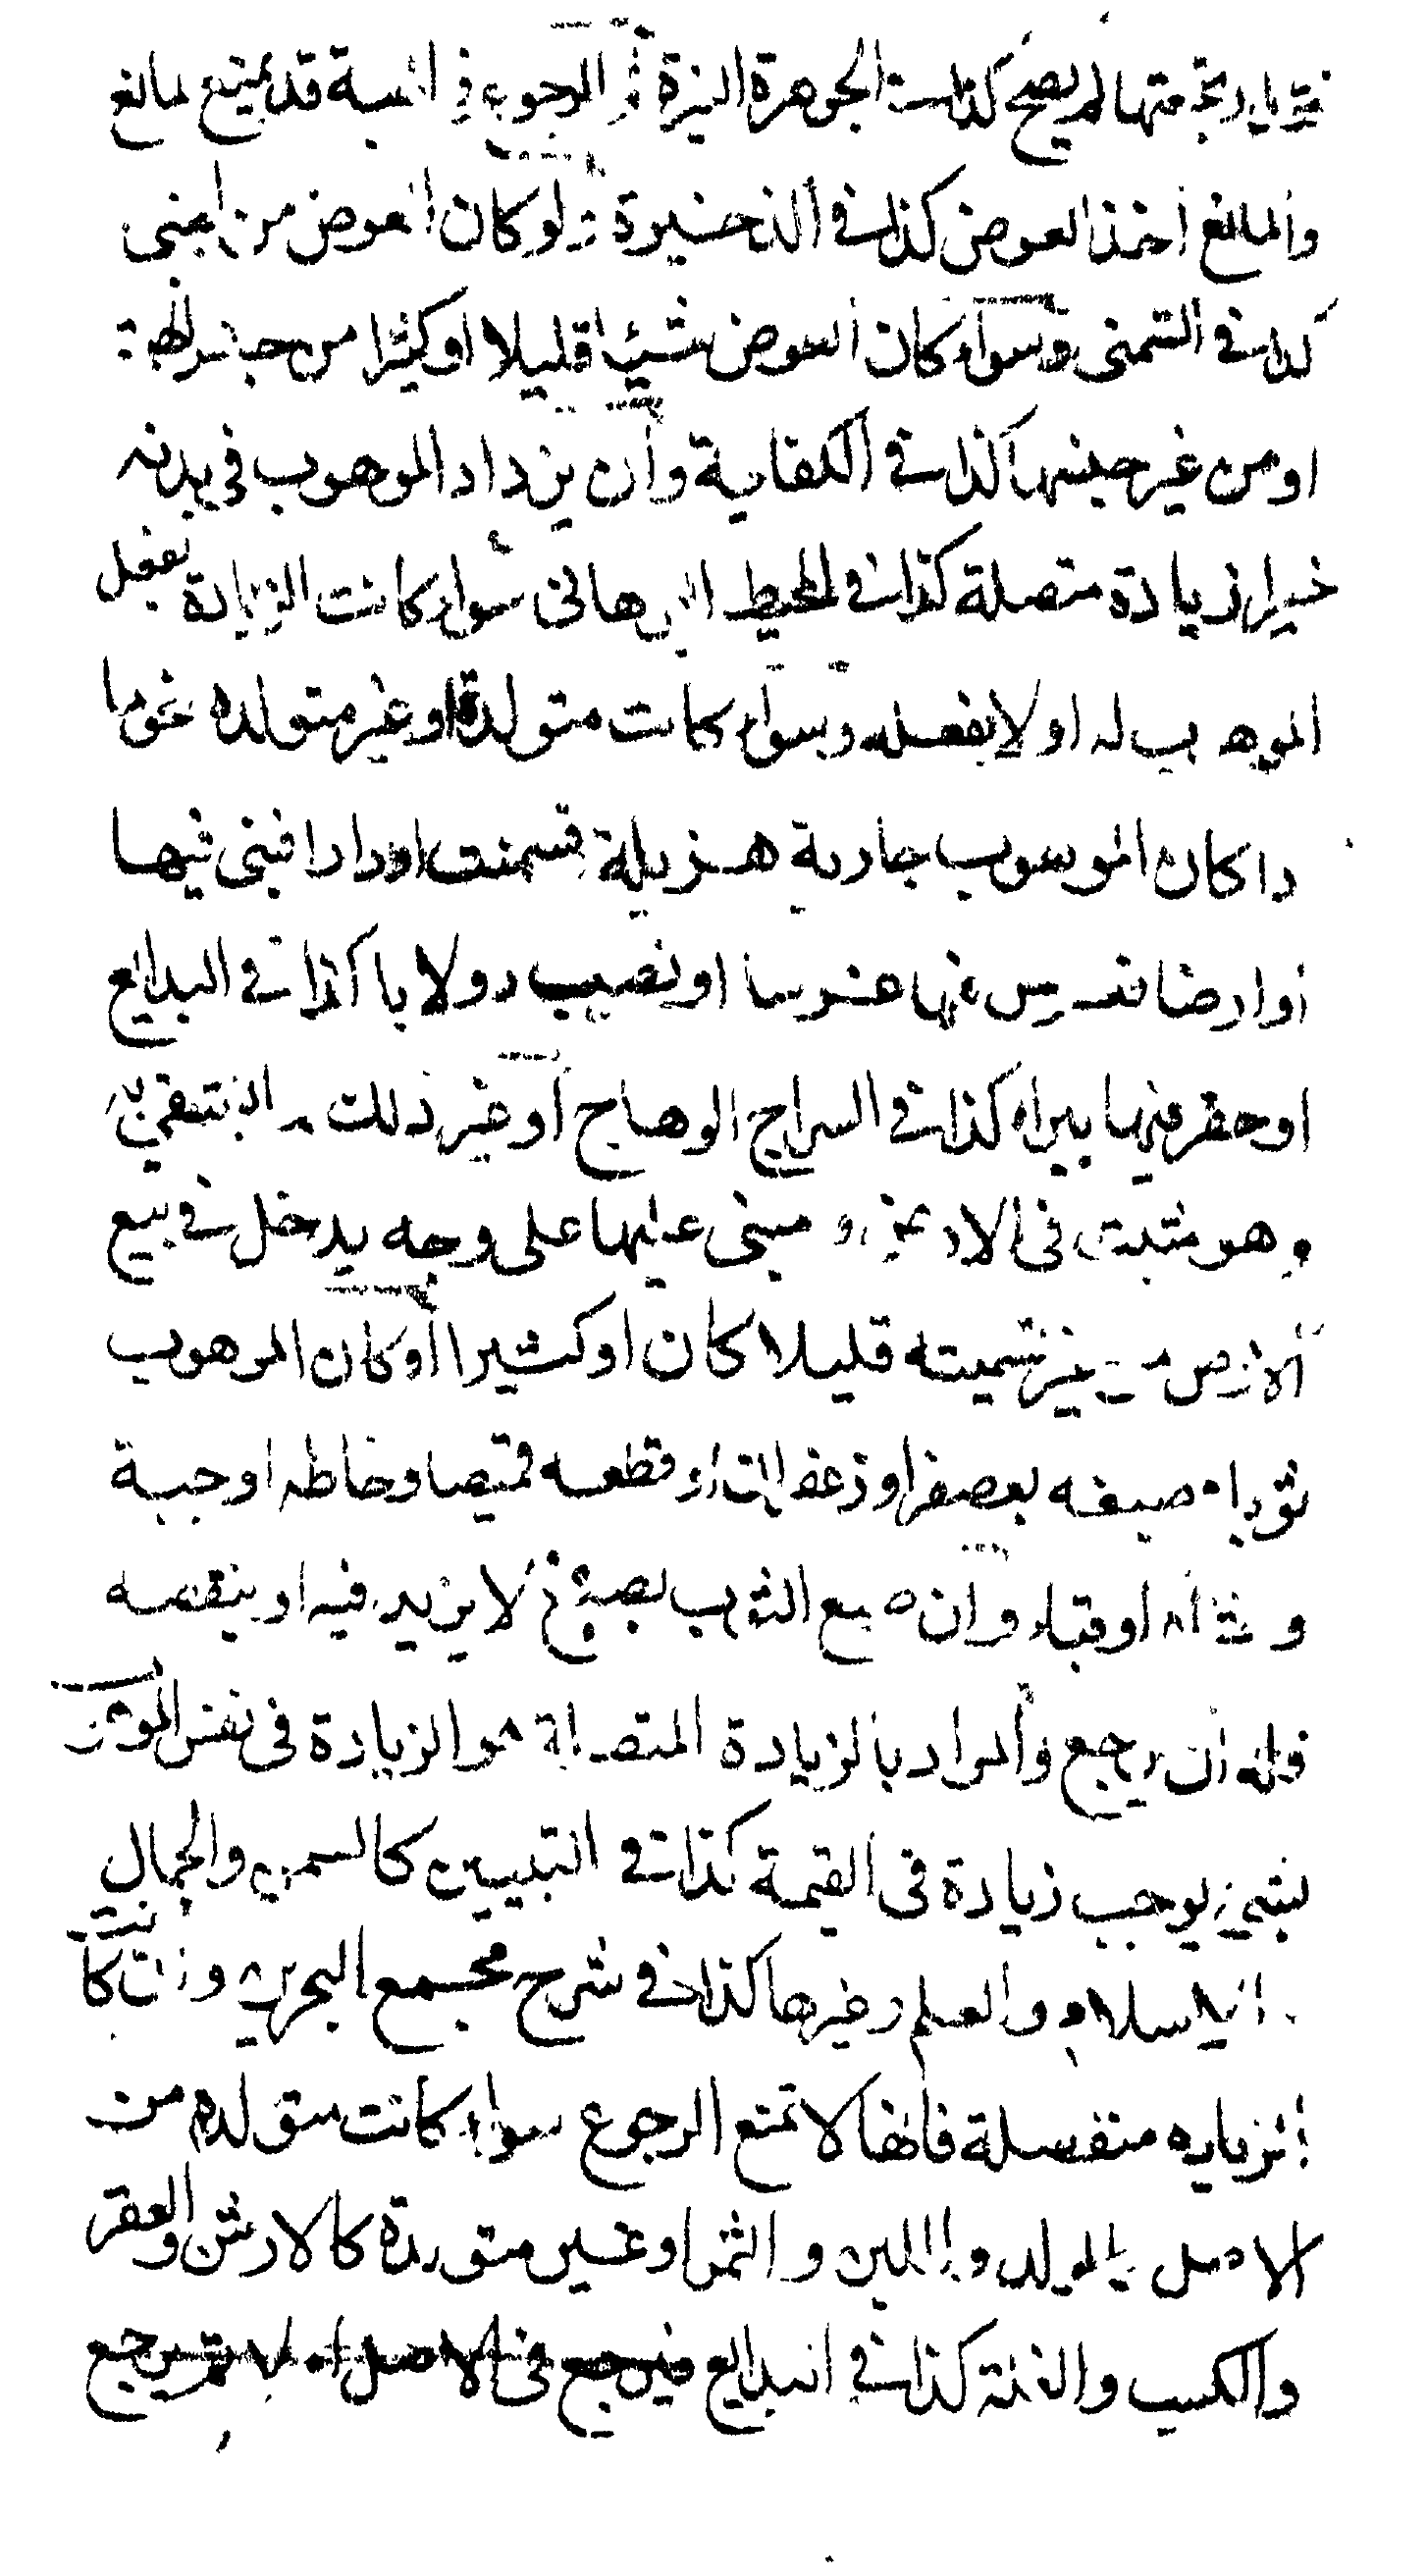 متها لم يصح كذا في الجوهرة النيرة ثم الرجوع في الهبة قد يمتنع لمانع
والمانع اخذ العوض كذا في الذخيرة ولو كان العوض من اجنبى
كذا في التمنى وسواء كان العوض شيئا قليلا او كثيرا من جنس الهبة
او من غير جنسها كذا في الكفاية وان يزداد الموهوب في بدنه
خيرا زيادة متصلة كذا في المحيط البرهانى سواء كانت الزيادة بفعل
الموهوب له او لا بفعله وسواء كانت متولدة او غير متولده نحو ما
اذا كان الموهوب جارية هزيلة فسمنت او دارا فبنى فيها
او ارضا فغرس فيها غرسا او نصب دولابا كذا في البدايع
او حفر فيها بيراه كذا في السراج الوهاج او غير ذلك
وهو مثبت في الارض و مبنى عليها على وجه يدخل في بيع
الارض من غير تسميته قليلا كان او كثيرا او كان الموهوب
ثوبا صبغه بعصفر او زعفران او قطعه قميصا وخاطه او جبة
وحشاه او قباء وان صبغ الثوب بصبغ لا يزيد فيه او ينقصه
فله ان يرجع والمراد بالزيادة المتصلة هو الزيادة في نفس الموهوب
بشئ يوجب زيادة في القيمة كذا في التبيين كالسمن والجمال
والاسلام والعلم وغيرها كذا في شرح مجمع البحرين وان كانت
الزياده منفصلة فانها لا تمنع الرجوع سواء كانت متولده من
الاصل كالولد واللبن والثمر او غير متولدة كالارش والعقر
والكسب والغلة كذا في البدايع فيرجع في الاصل يرجع